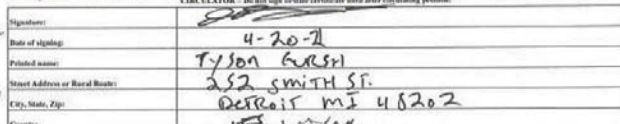 CIRCULATOR – Do not sign or date certificate until after circulating petition.
Signature:
Date of signing: 4-20-21
Printed name: Tyson
Street Address or Rural Route: 252 SMITH ST.
City, State, Zip: DETROIT MI 48202